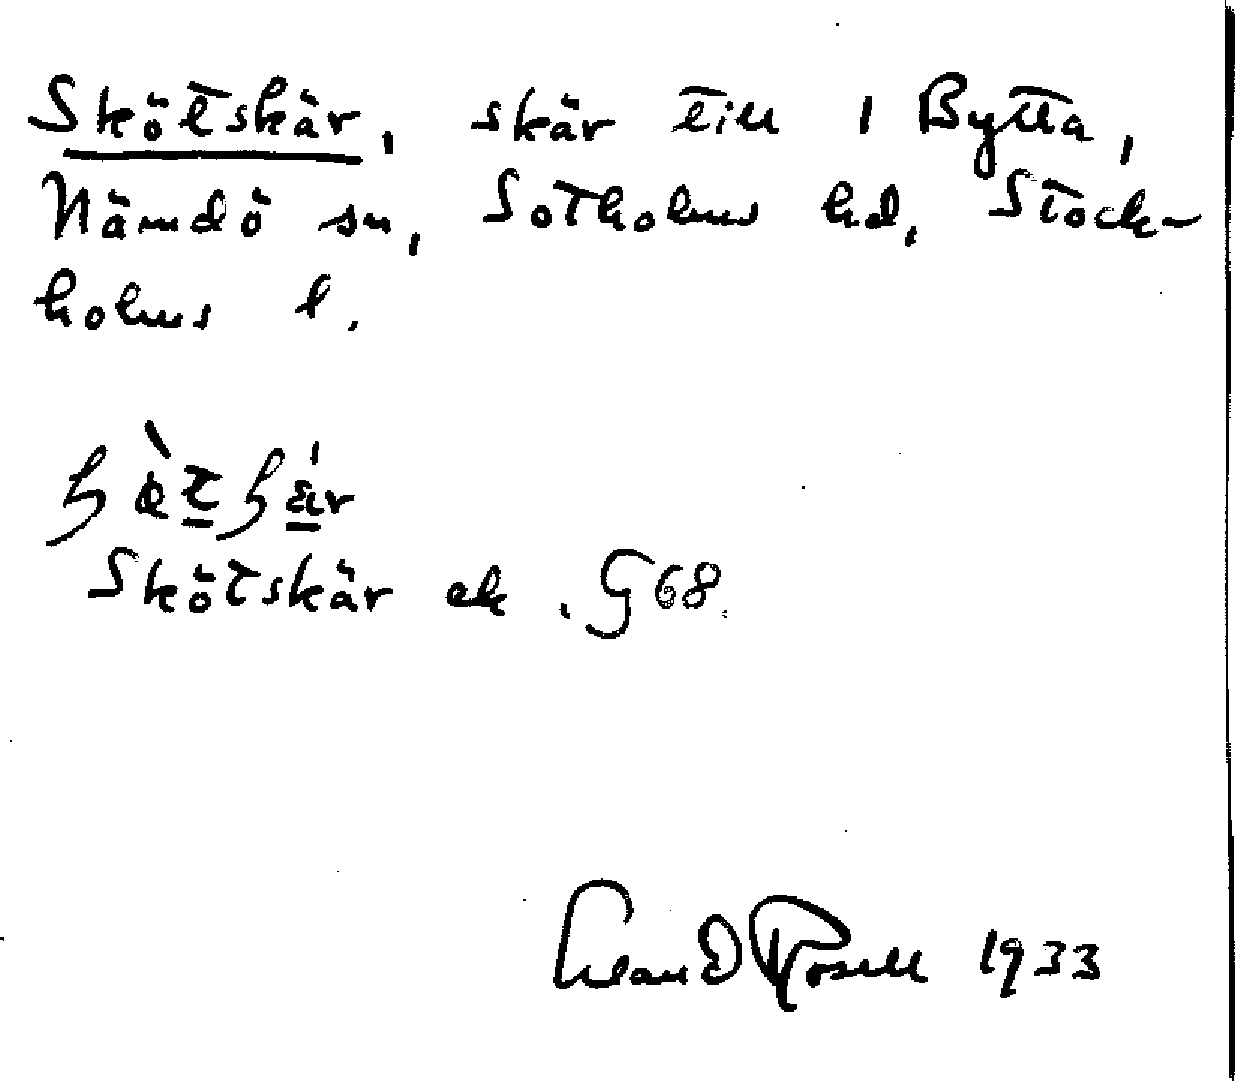 Skötskär, skär till 1 Bytta,
Nämdö sn, Sotholms hd, Stock-
holms l.
Skötskär ek. G 68.
Rosell 1933